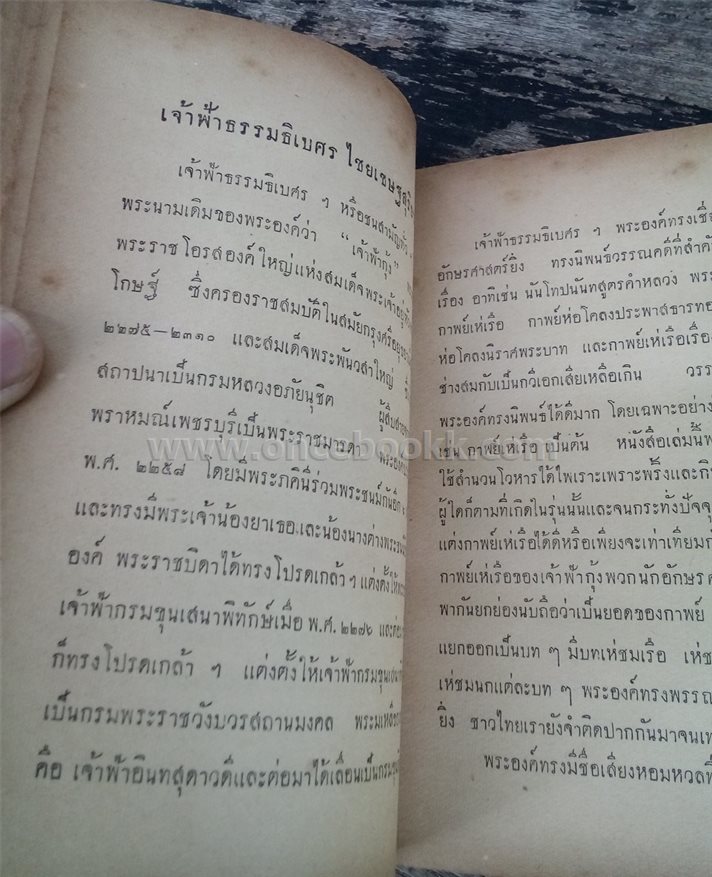 เจ้าฟ้าธรรมธิเบศร ไชยเชษฐสุริ
เจ้าฟ้าธรรมธิเบศร ๆ หรือชนสามัญ
พระนามเดิมของพระองค์ว่า "เจ้าฟ้ากุ้ง"
พระราชโอรสองค์ใหญ่แห่งสมเด็จพระเจ้าอยู่หัว
โกษฐ์ ซึ่งครองราชสมบัติในสมัยกรุงศรีอยุธยา
๒๒๗๕—๒๓๑๐ และสมเด็จพระพันวสาใหญ่
สถาปนาเป็นกรมหลวงอภัยนุชิต ผู้สืบสาย
พราหมณ์เพชรบุรีเป็นพระราชมารดา พระองค์
พ.ศ. ๒๒๕๘ โดยมีพระภคินีร่วมพระชนม์กันอีก
และทรงมีพระเจ้าน้องยาเธอ,และน้องนางต่างพระ
องค์ พระราชบิดาได้ทรงโปรดเกล้า ๆ แต่งตั้งให้
เจ้าฟ้ากรมขุนเสนาพิทักษ์เมื่อ พ.ศ. ๒๒๗๖ และต่อ
ก็ทรงโปรดเกล้า ๆ แต่งตั้งให้เจ้าฟ้ากรมขุนเสนา
เป็นกรมพระราชวังบวรสถานมงคล พระมเหสี
คือ เจ้าฟ้าอินทสุดาวดีและต่อมาได้เลื่อนเป็นกรมขุน
เจ้าฟ้าธรรมธิเบศร ๆ พระองค์ทรงเชี่
อักษรศาสตร์ยิ่ง ทรงนิพนธ์วรรณคดีที่สำคั
เรื่อง อาทิเช่น นันโทปนันทสูตรคำหลวง พระ
กาพย์เห่เรือ กาพย์ห่อโคลงประพาสธารทอ
ห่อโคลงนิราศพระบาท และกาพย์เห่เรือเรื่อง
ช่างสมกับเป็นกวีเอกเสียเหลือเกิน วรร
พระองค์ทรงนิพนธ์ได้ดีมาก โดยเฉพาะอย่าง
เช่น กาพย์เห่เรือ เป็นต้น หนังสือเล่มนี้
ใช้สำนวนโวหารได้ไพเราะเพราะพริ้งและกิ
ผู้ใดก็ตามที่เกิดในรุ่นนั้นและจนกระทั่งปัจจุ
แต่งกาพย์เห่เรือได้ดีหรือเพียงจะเท่าเทียม
กาพย์เห่เรือของเจ้าฟ้ากุ้งพวกนักอักษร
พากันยกย่องนับถือว่าเป็นยอดของกาพย์
แยกออกเป็นบท ๆ มีบทเห่ชมเรือ เห่ช
เห่ชมนกแต่ละบท ๆ พระองค์ทรงพรรณ
ยิ่ง ชาวไทยเรายังจำติดปากกันมาจน
พระองค์ทรงมีชื่อเสียงหอมหวล
www.oncebookk.com